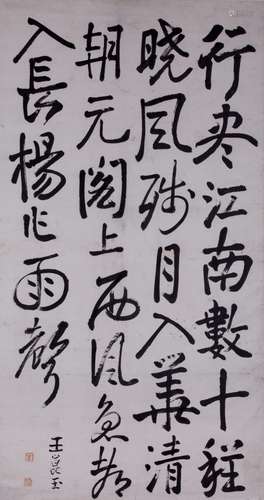 行尽江南數十程
曉風殘月入華清
朝元閣上西風急都
入長楊作雨聲
王玉